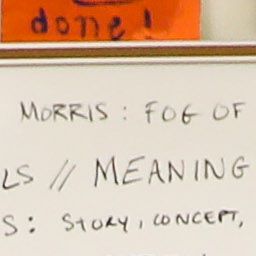 done!
MORRIS: FOG OF
LS // MEANING
S: STORY, CONCEPT,